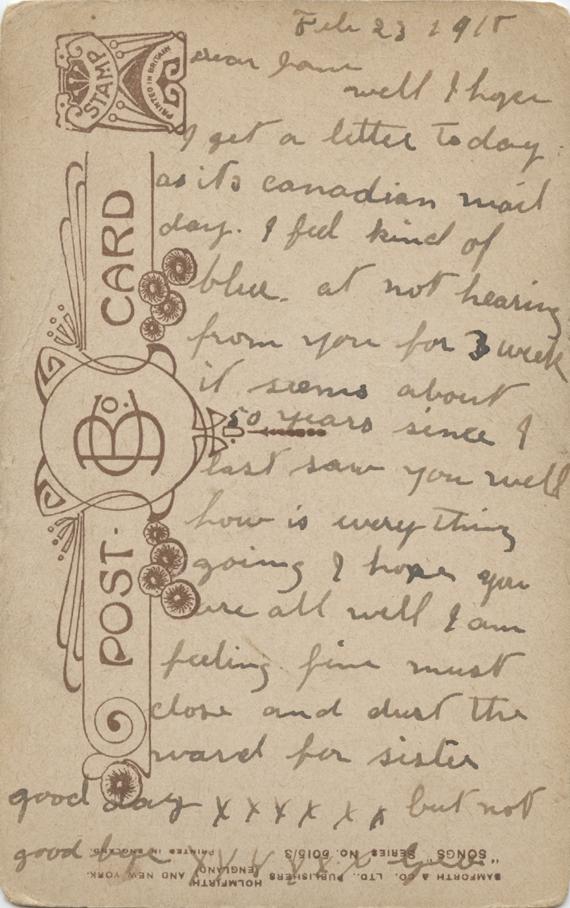 Feb 23 1915
dear
well I hope
I get a letter today
as its canadian mail
day. I feel kind of
blue. at not hearing
from you for 3 week
it seems about
50 years since I
last saw you well
how is every thing
going I hope you
are all well I am
feeling fine must
close and dust the
ward for sister
good day x x x x x x but not
good bye x x x x x x x
STAMP
PRINTED IN BRITAIN
POST-CARD
B & Co.
BAMFORTH & CO., LTD., PUBLISHERS (ENGLAND) HOLMFIRTH AND NEW YORK.
"SONGS" SERIES NO. 5015/3 PRINTED IN ENGLAND.